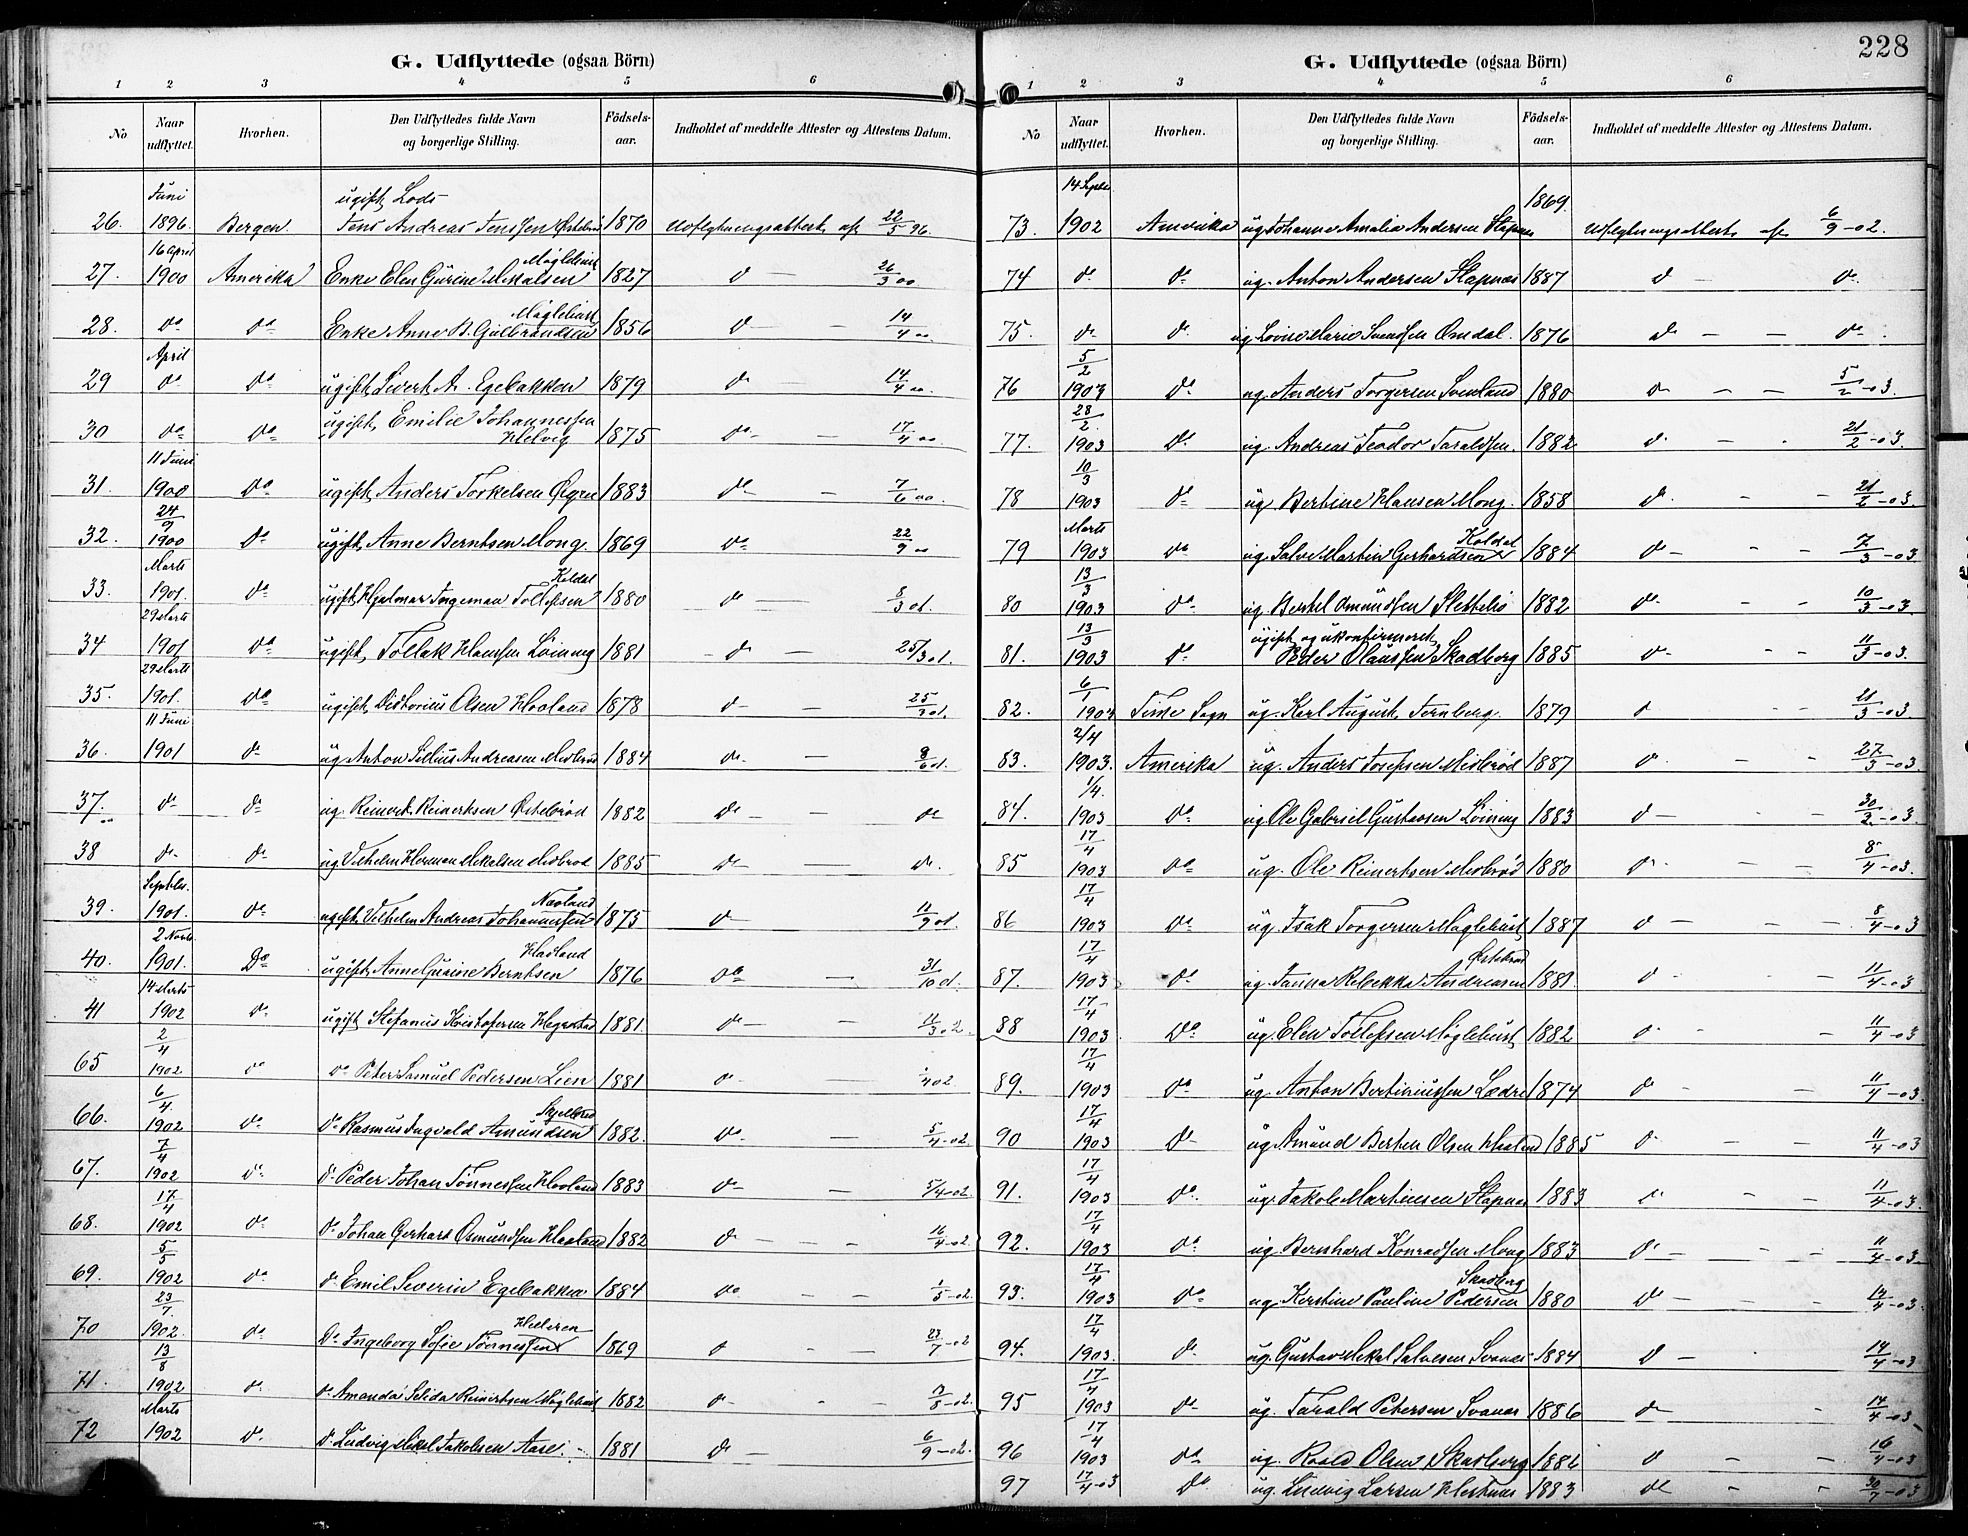 228
G. Udflyttede (ogsaa Börn)
1 2 3 4 5 6
No Naar udflyttet. Hvorhen. Den Udflyttedes fulde Navn og borgerlige Stilling. Födsels-aar. Indholdet af meddelte Attester og Attestens Datum.
Juni ugift, Lods
26. 1896. Bergen. Jens Andreas Jenssen Østebrød 1870 Udflytningsattest af 22/5 96.
16 April Møglehust
27. 1900 Amerika Enke Elen Gurine Mikalsen 1827 d — 26/3 00
Møglehust
28. do do Enke Anne B. Gulbrandsen 1856 d — 14/4 00
April
29 do do ugift, Sivert A. Egebakken 1879 do — 14/4 00.
30 do do ugift, Emilie Johannessen
Helvig 1875 do — 17/4 00.
11 Juni
31. 1900 do ugift, Anders Torkelsen Øgre 1883 do — 7/6 00.
24/9
32. 1900 do ugift, Anne Berntsen Mong. 1869 do — 22/9 00
Marts Koldal
33. 1901. do ugift, Hjalmar Ingeman Tollefsen 1880 do — 8/3 01.
29 Marts
34 1901 do ugift, Tollak Hanssen Løining 1881 do — 25/3 01.
29 Marts
35. 1901. do ugift, Olsen Haaland 1878 do — 25/3 01.
11 Juni
36. 1901 do ug. Anton Andreasen Midbrød 1884 do — 8/6 01.
37. do do ug. Reinert Reinertsen Østebrød 1882 do — do
38 do do ug. Vilhelm Herman Mikalsen Midbrød 1885 do — do.
Septbr. Navland
39. 1901. do ugift, Vilhelm Andreas Johannessen 1875 d — 11/9 01
2 Novb. Haaland
40. 1901. Do ugift, Anne Gurine Berntsen 1876 do — 31/10 01.
14 Marts
41 1902 do ugift, Stefanus Kristofersen Hegrestad 1881 do — 11/3 02.
2/4
65 1902 do do Peter Samuel Pedersen Lien 1881 do — 402
6/4 Skjelbred
66. 1902 do do Rasmus Ingvald Amundsen 1882. do — 5/4-02
7/4
67. 1902 do do Peder Johan Tønnessen Haaland 1883 do — 5/4-02.
17/4
68. 1902 do do Johan Gerhard Osmundsen Haaland 1882 do — 16/4-02
5/5
69. 1902 do do Emil Severin Egebakken 1884 do — 1/5-02.
23/7. Helleren
70 1902. do Do Ingeborg Sofie Tønnessen 1869 d — 23/7-02
13/8
71. 1902 do do Amanda Selida Reinertsen Møglehust 1882 do — /8-02.
Marts
72 1902 do do Ludvig Mikal Jakobsen Aase. 1881 do — 6/9-02.
G. Udflyttede (ogsaa Börn)
1 2 3 4 5 6
No Naar udflyttet. Hvorhen. Den Udflyttedes fulde Navn og borgerlige Stilling. Födsels-aar. Indholdet af meddelte Attester og Attestens Datum.
14 Septbr. 1869.
73. 1902 Amerika ug. Johanne Amalia Andersen Stapnes Udflytningsattest af 6/9-02.
74 do do ug. Anton Andersen Stapnes 1887 d — do.
75. do do ug. Lovise Marie Svendsen Omdal. 1876 do — do.
5/2
76 1903 do ug. Anders Torgersen Svenland 1880 do — 5/2-03.
28/2.
77. 1903 do ug. Andreas Teodor Taraldsen. 1882 do — 21/2-03.
10/3
78 1903 do ug. Bertine Hansen Mong. 1858 do. — 21/2-03.
Marts Koldal
79 1903 do ug. Salve Martin Gerhardsen 1884 do — 7/3-03.
13/3
80 1903 do ug. Bertel Omundsen Slettebø 1882 do — 10/3-03.
13/3 ugift og ukonfirmeret
81. 1903 do Peder Olaussen Skadberg 1885 do — 11/3-03.
6/1
82. 1903 Time Sogn ug. Karl August Fernberg. 1879 d — 21/3-03.
2/4
83. 1903. Amerika ug. Anders Josefsen Midbrød 1887 do — 27/3-03.
1/4.
84. 1903 do ug. Ole Gabriel Gustavsen Løining 1883 d — 30/3-03.
17/4
85 1903 do ug. Ole Reinertsen Midbrød 1880 do — 8/4-03.
17/4
86 1903 do ug. Isak Torgersen Møglehust 1887 d — 8/4-03
17/4 Østebrød
87. 1903 do ug. Janna Rebekka Andreasen 1881 do — 11/4-03
17/4
88 1903 Do ug. Elen Tollefsen Møglehust 1882 d — 11/4-03
17/4
89. 1903 do ug. Anton Bertiniussen Lædre 1874 do — 11/4-03
17/4
90 1903 do ug. Amund Berten Olsen Haaland 1885 do — 11/4-03
17/4
91. 1903 do ug. Jakob Martinsen Stapnes 1883 do — 11/4-03.
17/4
92. 1903 do ug. Bernhard Konradsen Mong 1883 do — 11/4-03
17/4 Skadberg
93. 1903 do ug. Kerstine Pauline Pedersen 1880 do — 14/4-03
17/4
94. 1903. do ug. Gustav Mikal Salvesen Svanes 1884 d — 14/4-03
17/4
95 1903 do ug. Tarald Petersen Svanes 1886 do — 14/4-03
17/4
96 1903 do ug. Roald Olsen Skadberg 1886 d — 16/4-03
97 17/4-03 do ug. Ludvig Larsen Hestnes 1883 do — 30/7-03